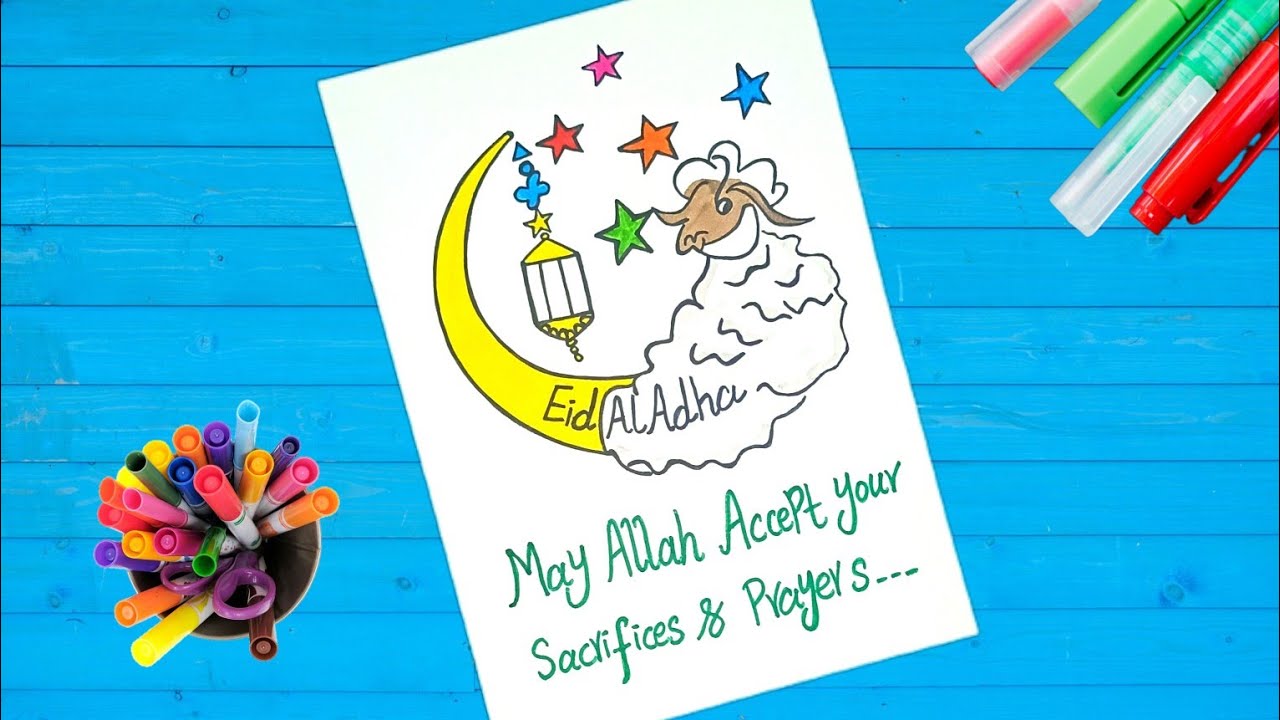 Eid Al Adha
May Allah Accept your
Sacrifices & Prayers---